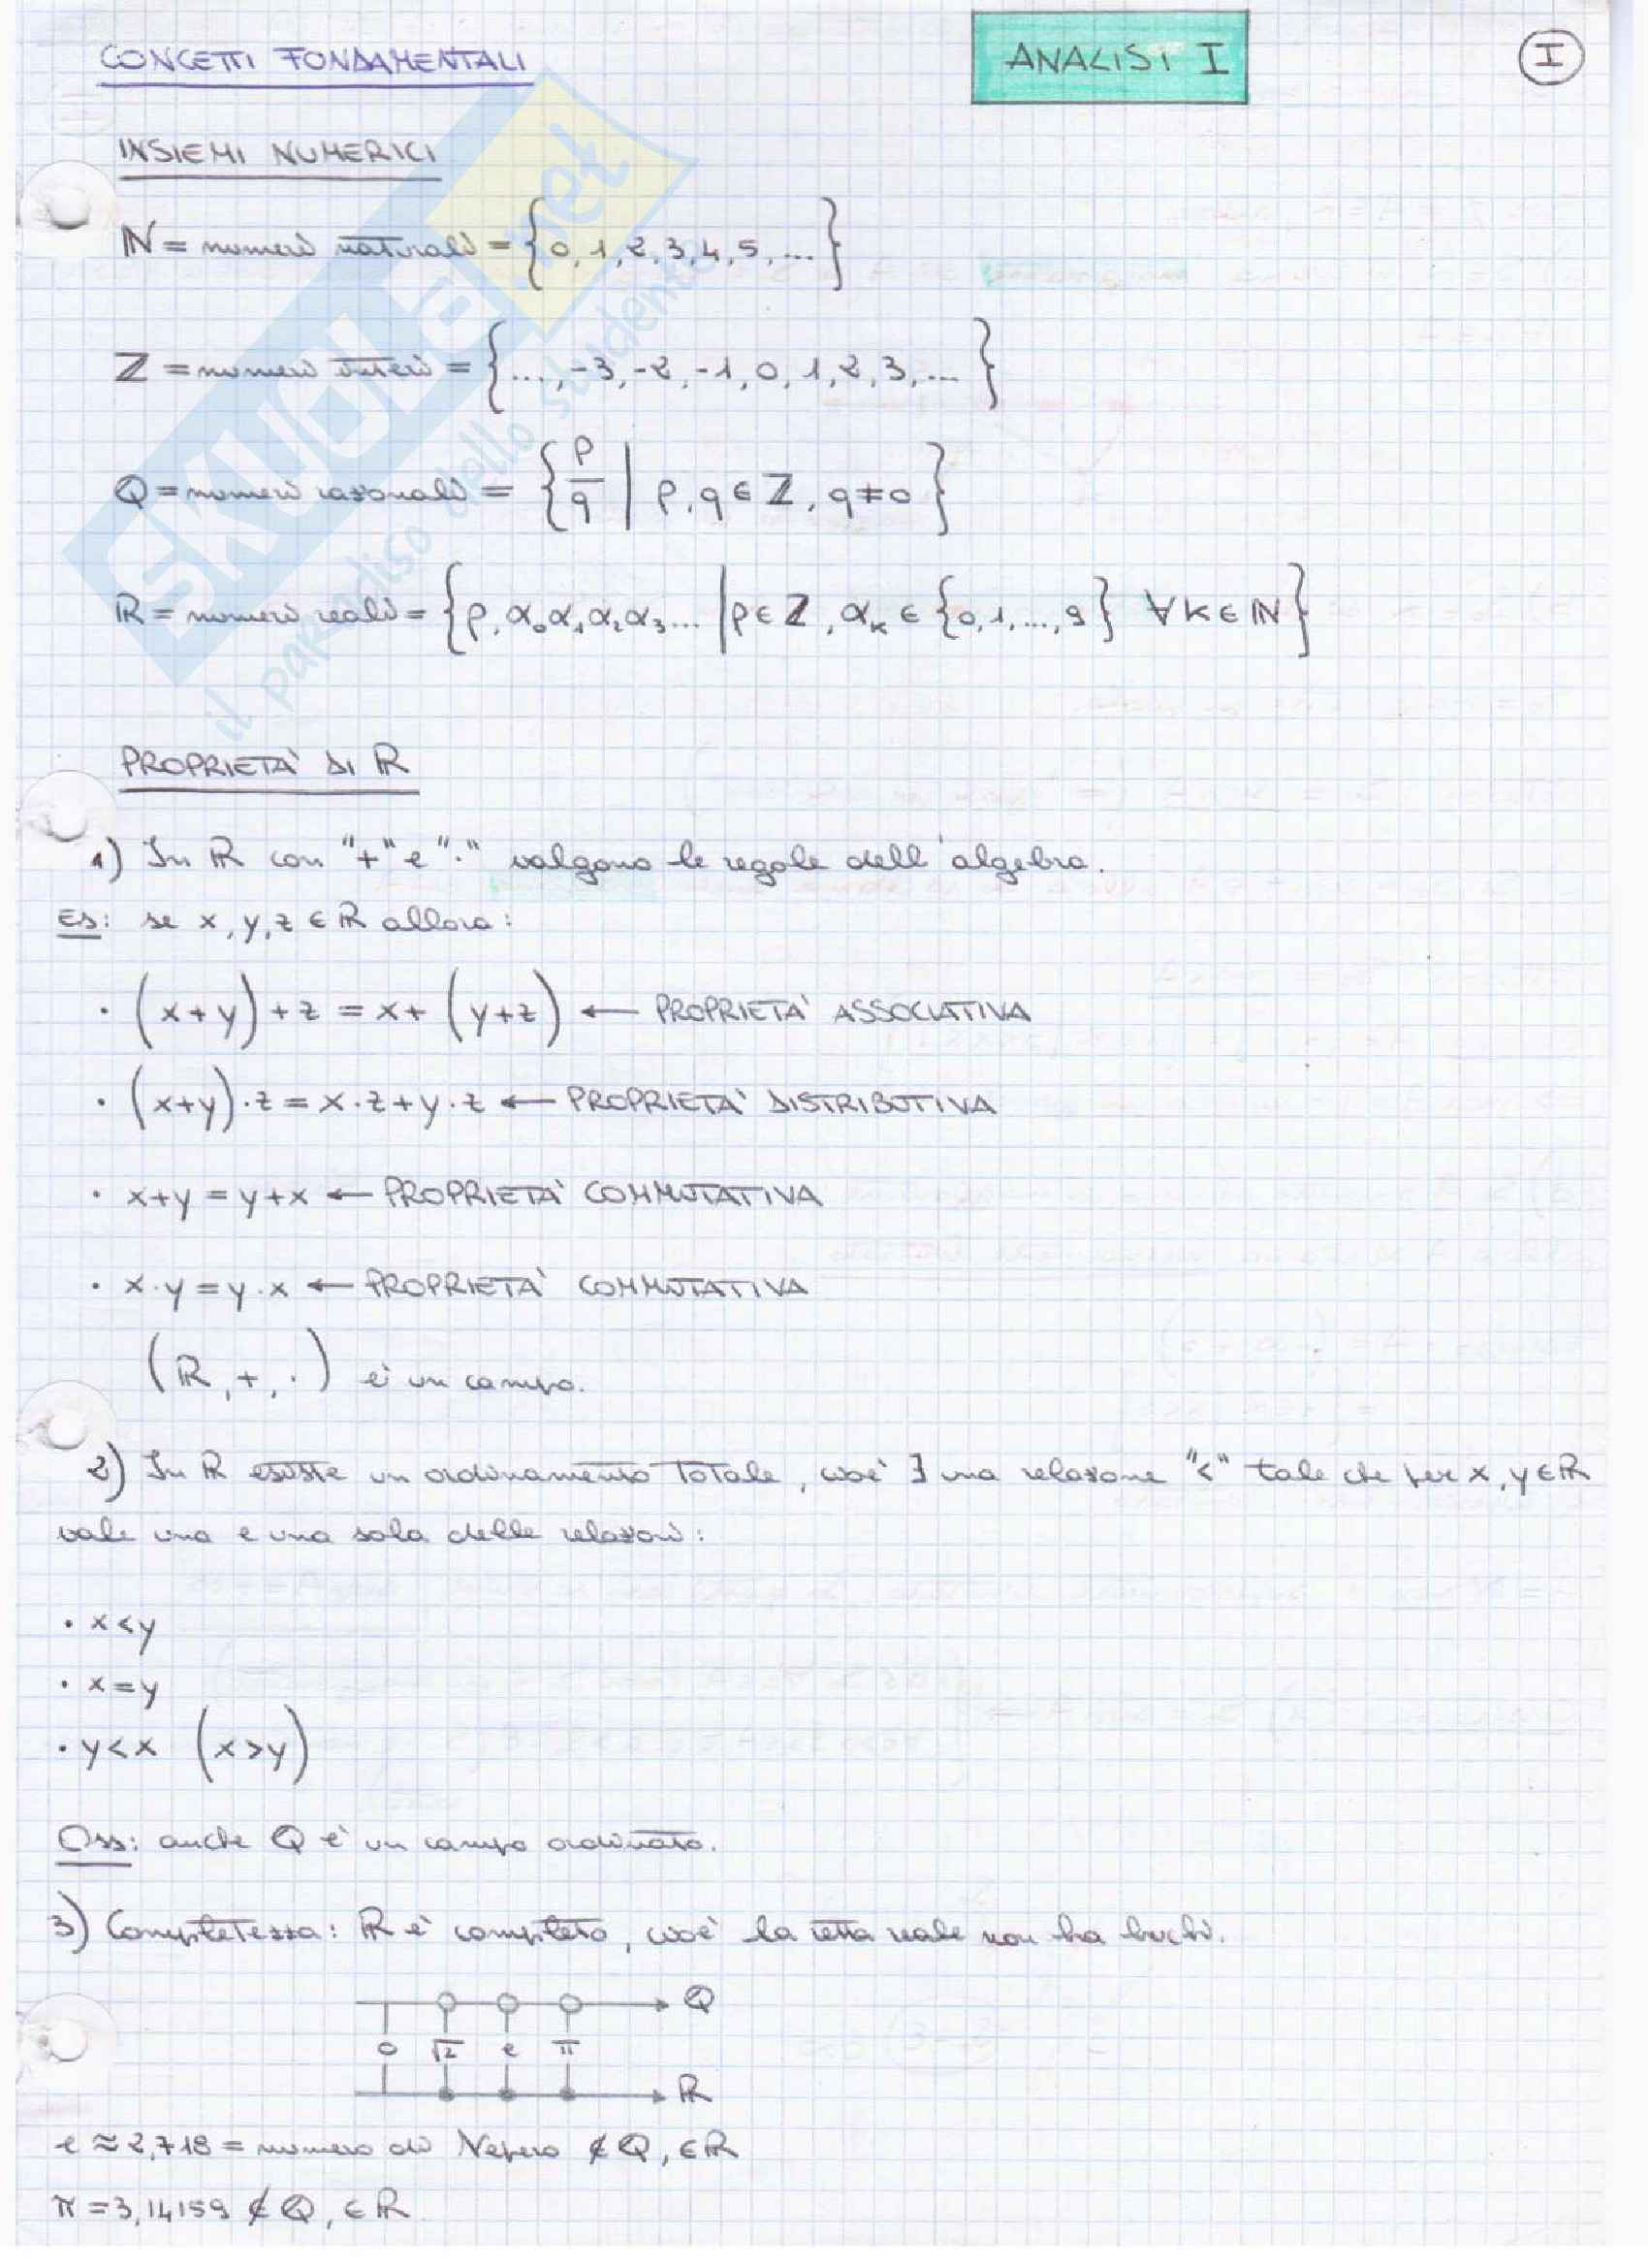 CONCETTI FONDAMENTALI
ANALISI I
I
INSIEMI NUMERICI
ℕ = numeri naturali = {0, 1, 2, 3, 4, 5, ...}
ℤ = numeri interi = {..., -3, -2, -1, 0, 1, 2, 3, ...}
ℚ = numeri razionali = {p/q | p, q ∈ ℤ, q ≠ 0}
ℝ = numeri reali = {p, α₀α₁α₂α₃... | p ∈ ℤ, αₖ ∈ {0, 1, ..., 9} ∀ k ∈ ℕ}
SKUOLA.net
il paradiso dello studente
PROPRIETA' DI ℝ
1) In ℝ con "+" e "·" valgono le regole dell'algebra.
Es: se x, y, z ∈ ℝ allora:
· (x+y)+z = x+(y+z) ← PROPRIETA' ASSOCIATIVA
· (x+y)·z = x·z+y·z ← PROPRIETA' DISTRIBUTIVA
· x+y = y+x ← PROPRIETA' COMMUTATIVA
· x·y = y·x ← PROPRIETA' COMMUTATIVA
(ℝ, +, ·) è un campo.
2) In ℝ esiste un ordinamento totale, cioè ∃ una relazione "<" tale che per x, y ∈ ℝ
vale una e una sola delle relazioni:
· x<y
· x=y
· y<x (x>y)
Oss: anche ℚ è un campo ordinato.
3) Completezza: ℝ è completo, cioè la retta reale non ha buchi.
ℚ
0 √2 e π
ℝ
e ≈ 2,718 = numero di Nepero ∉ ℚ, ∈ ℝ
π = 3,14159 ∉ ℚ, ∈ ℝ